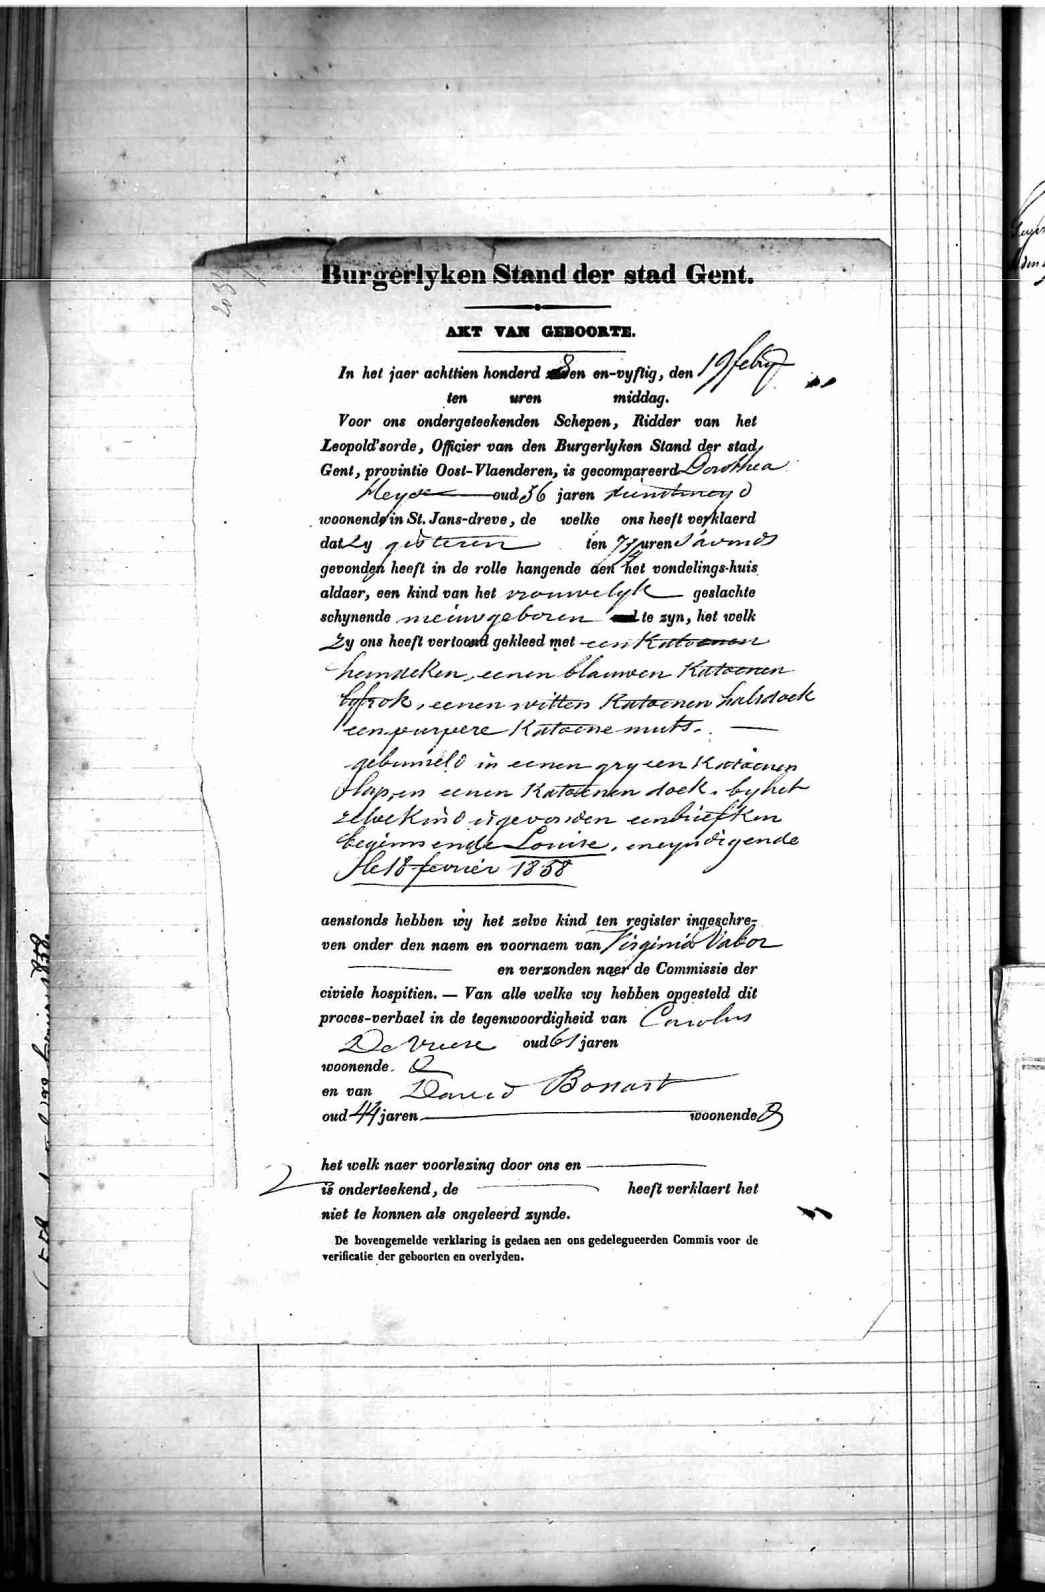 Burgerlyken Stand der stad Gent.
AKT VAN GEBOORTE.
In het jaer achttien honderd 8 en en-vyftig, den 19 feb
ten uren middag.
Voor ons ondergeteekenden Schepen, Ridder van het
Leopold'sorde, Officier van den Burgerlyken Stand der stad
Gent, provintie Oost-Vlaenderen, is gecompareerd Dorothea
oud 56 jaren
woonende in St. Jans-dreve, de welke ons heeft verklaerd
dat zy gisteren ten 7 uren s'avonds
gevonden heeft in de rolle hangende aen het vondelings-huis
aldaer, een kind van het vrouwelyk geslachte
schynende nieuwgeboren te zyn, het welk
zy ons heeft vertoond gekleed met een Katoenen
hemdeken, eenen blauwen Katoenen
eenen witten Katoenen halsdoek
een purpere Katoene muts.
gebunseld in eenen gryzen Katoenen
slap, en eenen Katoenen doek. by het
zelve Kind is gevonden een briefken
beginnsende Louise, eneyndigende
le 18 fevrier 1858
aenstonds hebben wy het zelve kind ten register ingeschre-
ven onder den naem en voornaem van Virginia Vabor
en verzonden naer de Commissie der
civiele hospitien. — Van alle welke wy hebben opgesteld dit
proces-verbael in de tegenwoordigheid van Carolus
De Vriese oud 61 jaren
woonende.
en van David Bossaert
oud 44 jaren woonende
het welk naer voorlezing door ons en
is onderteekend, de heeft verklaert het
niet te konnen als ongeleerd zynde.
De bovengemelde verklaring is gedaen aen ons gedelegueerden Commis voor de
verificatie der geboorten en overlyden.